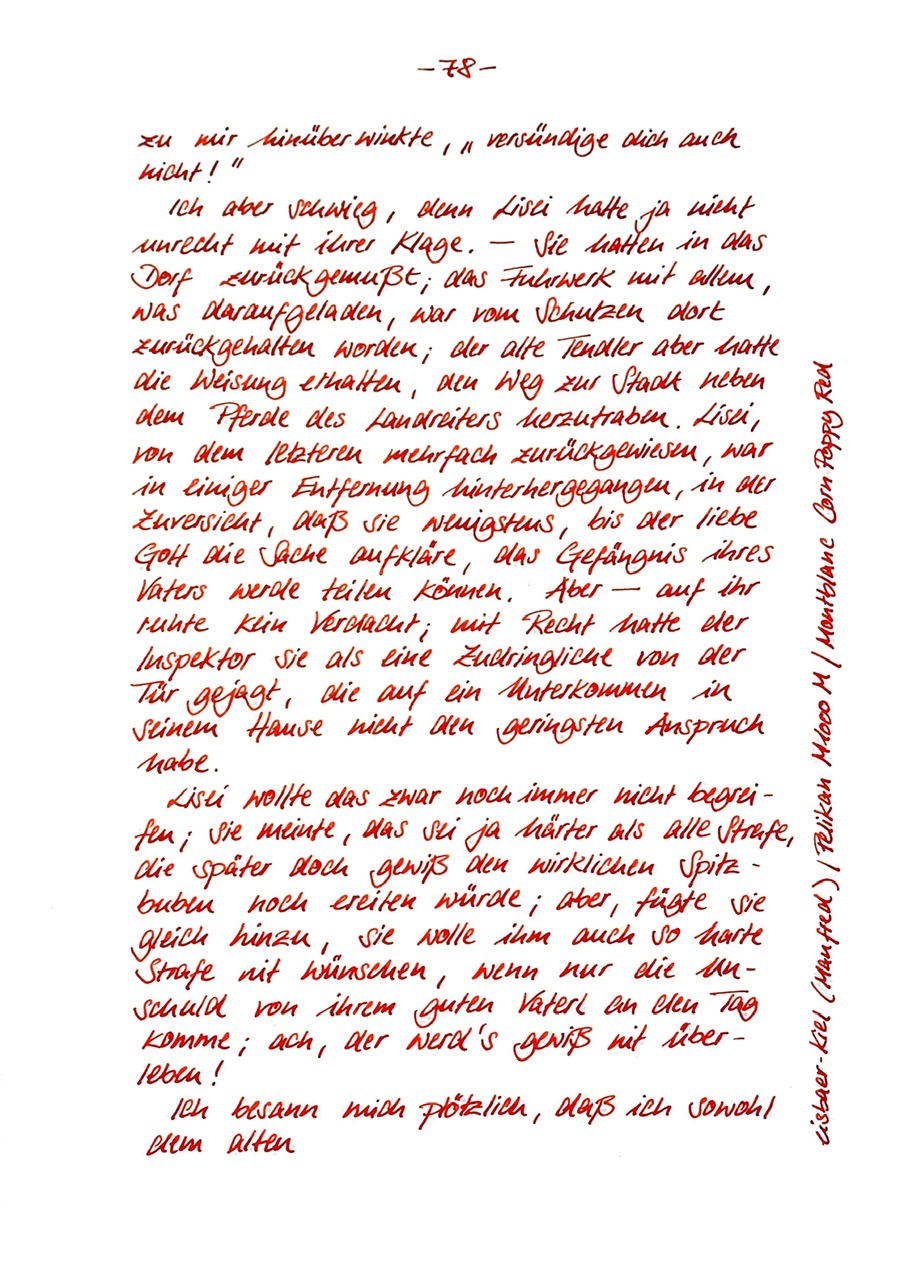 -78-
zu mir hinüberwinkte, „versündige dich auch
nicht!"
Ich aber schwieg, denn Lisei hatte ja nicht
unrecht mit ihrer Klage. — Sie hatten in das
Dorf zurückgemußt; das Fuhrwerk mit allem,
was daraufgeladen, war vom Schulzen dort
zurückgehalten worden; der alte Tendler aber hatte
die Weisung erhalten, den Weg zur Stadt neben
dem Pferde des Landreiters herzutraben. Lisei,
von dem letzteren mehrfach zurückgewiesen, war
in einiger Entfernung hinterhergegangen, in der
Zuversicht, daß sie wenigstens, bis der liebe
Gott die Sache aufkläre, das Gefängnis ihres
Vaters werde teilen können. Aber — auf ihr
ruhte kein Verdacht; mit Recht hatte der
Inspektor sie als eine Zudringliche von der
Tür gejagt, die auf ein Unterkommen in
seinem Hause nicht den geringsten Anspruch
habe.
Lisei wollte das zwar noch immer nicht begrei-
fen; sie meinte, das sei ja härter als alle Strafe,
die später doch gewiß den wirklichen Spitz-
buben noch ereilen würde; aber, fügte sie
gleich hinzu, sie wolle ihm auch so harte
Strafe nit wünschen, wenn nur die Un-
schuld von ihrem guten Vaterl an den Tag
komme; ach, der werd's gewiß nit über-
leben!
Ich besann mich plötzlich, daß ich sowohl
dem alten
eisbaer-kiel (Manfred) / Pelikan M1000 M / Montblanc Corn Poppy Red